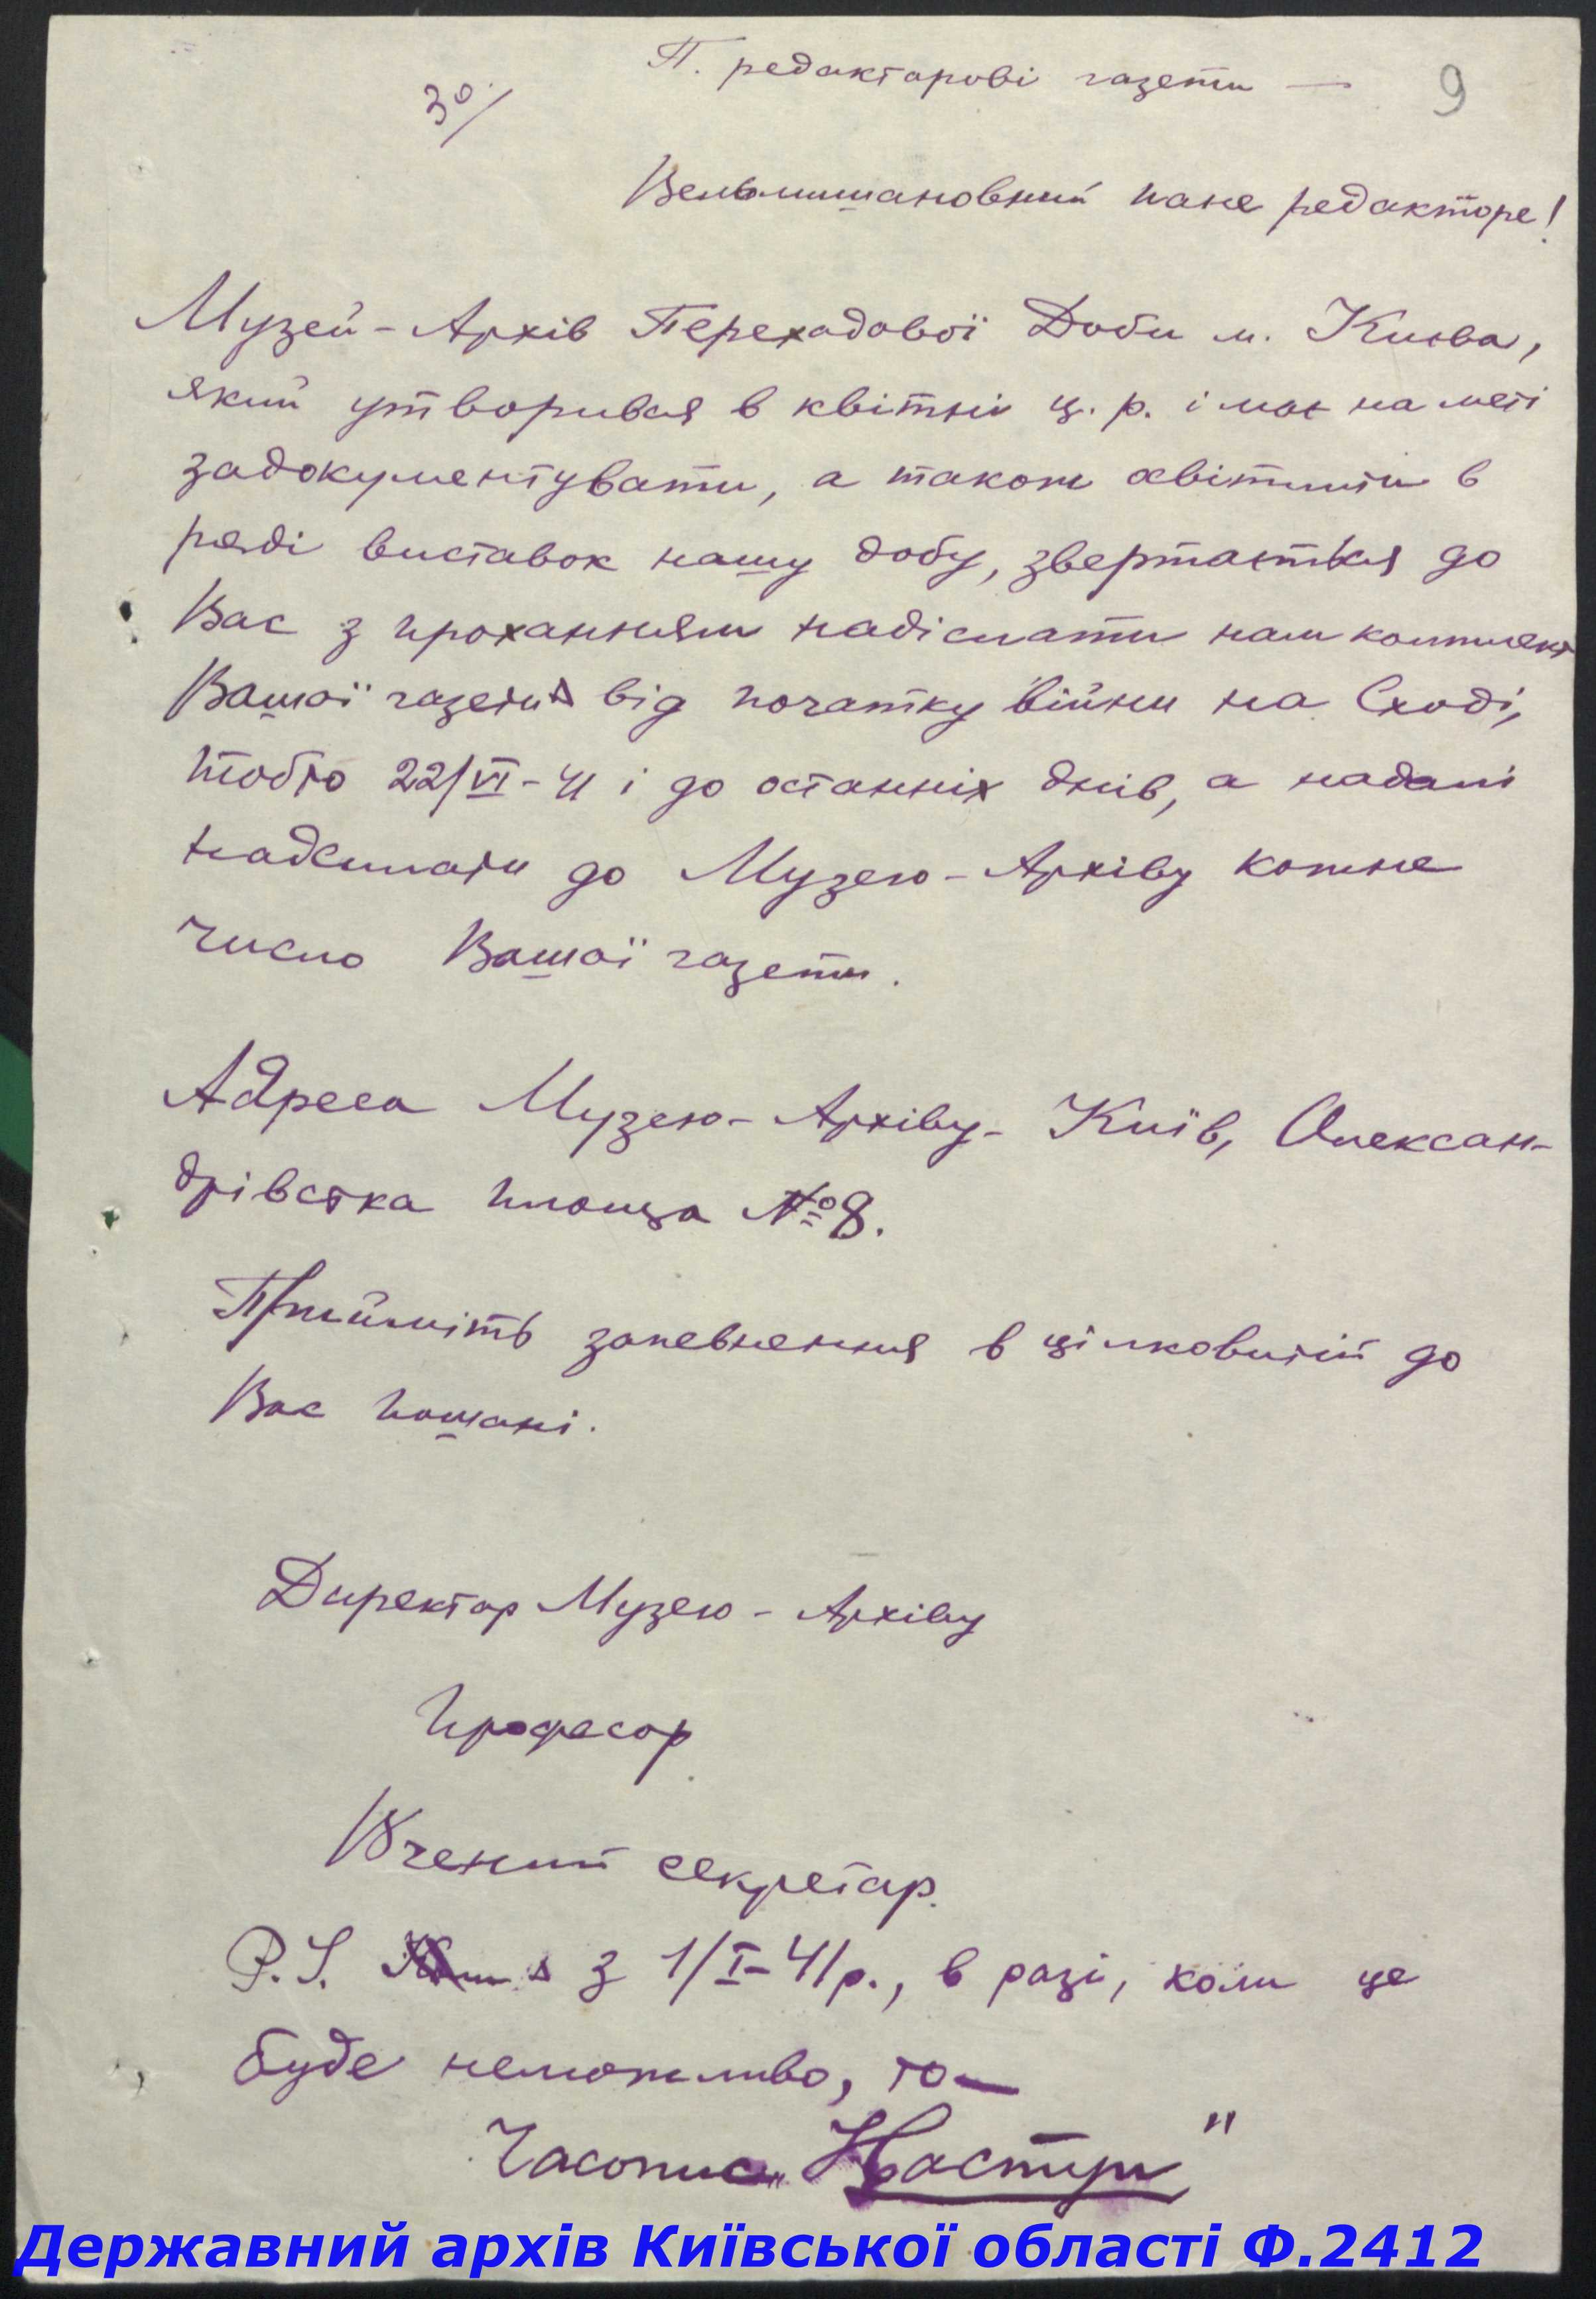 П. редакторові газети —
9
30/
Вельмишановний пане редакторе!
Музей-Архів Переходової Доби м. Києва,
який утворився в квітні ц. р. і має на меті
задокументувати, а також освітити в
ряді виставок нашу добу, звертається до
Вас з проханням надіслати нам комплект
Вашої газети від початку війни на Сході,
тобто 22/VI-41 і до останніх днів, а надалі
надсилати до Музею-Архіву кожне
число Вашої газети.
Адреса Музею-Архіву - Київ, Олексан-
дрівська площа №8.
Прийміть запевнення в цілковитій до
Вас пошані.
Директор Музею-Архіву
Професор
Вчений секретар.
P.S. з 1/I-41р., в разі, коли це
буде неможливо, то—
Часопис „Наступ"
Державний архів Київської області Ф.2412